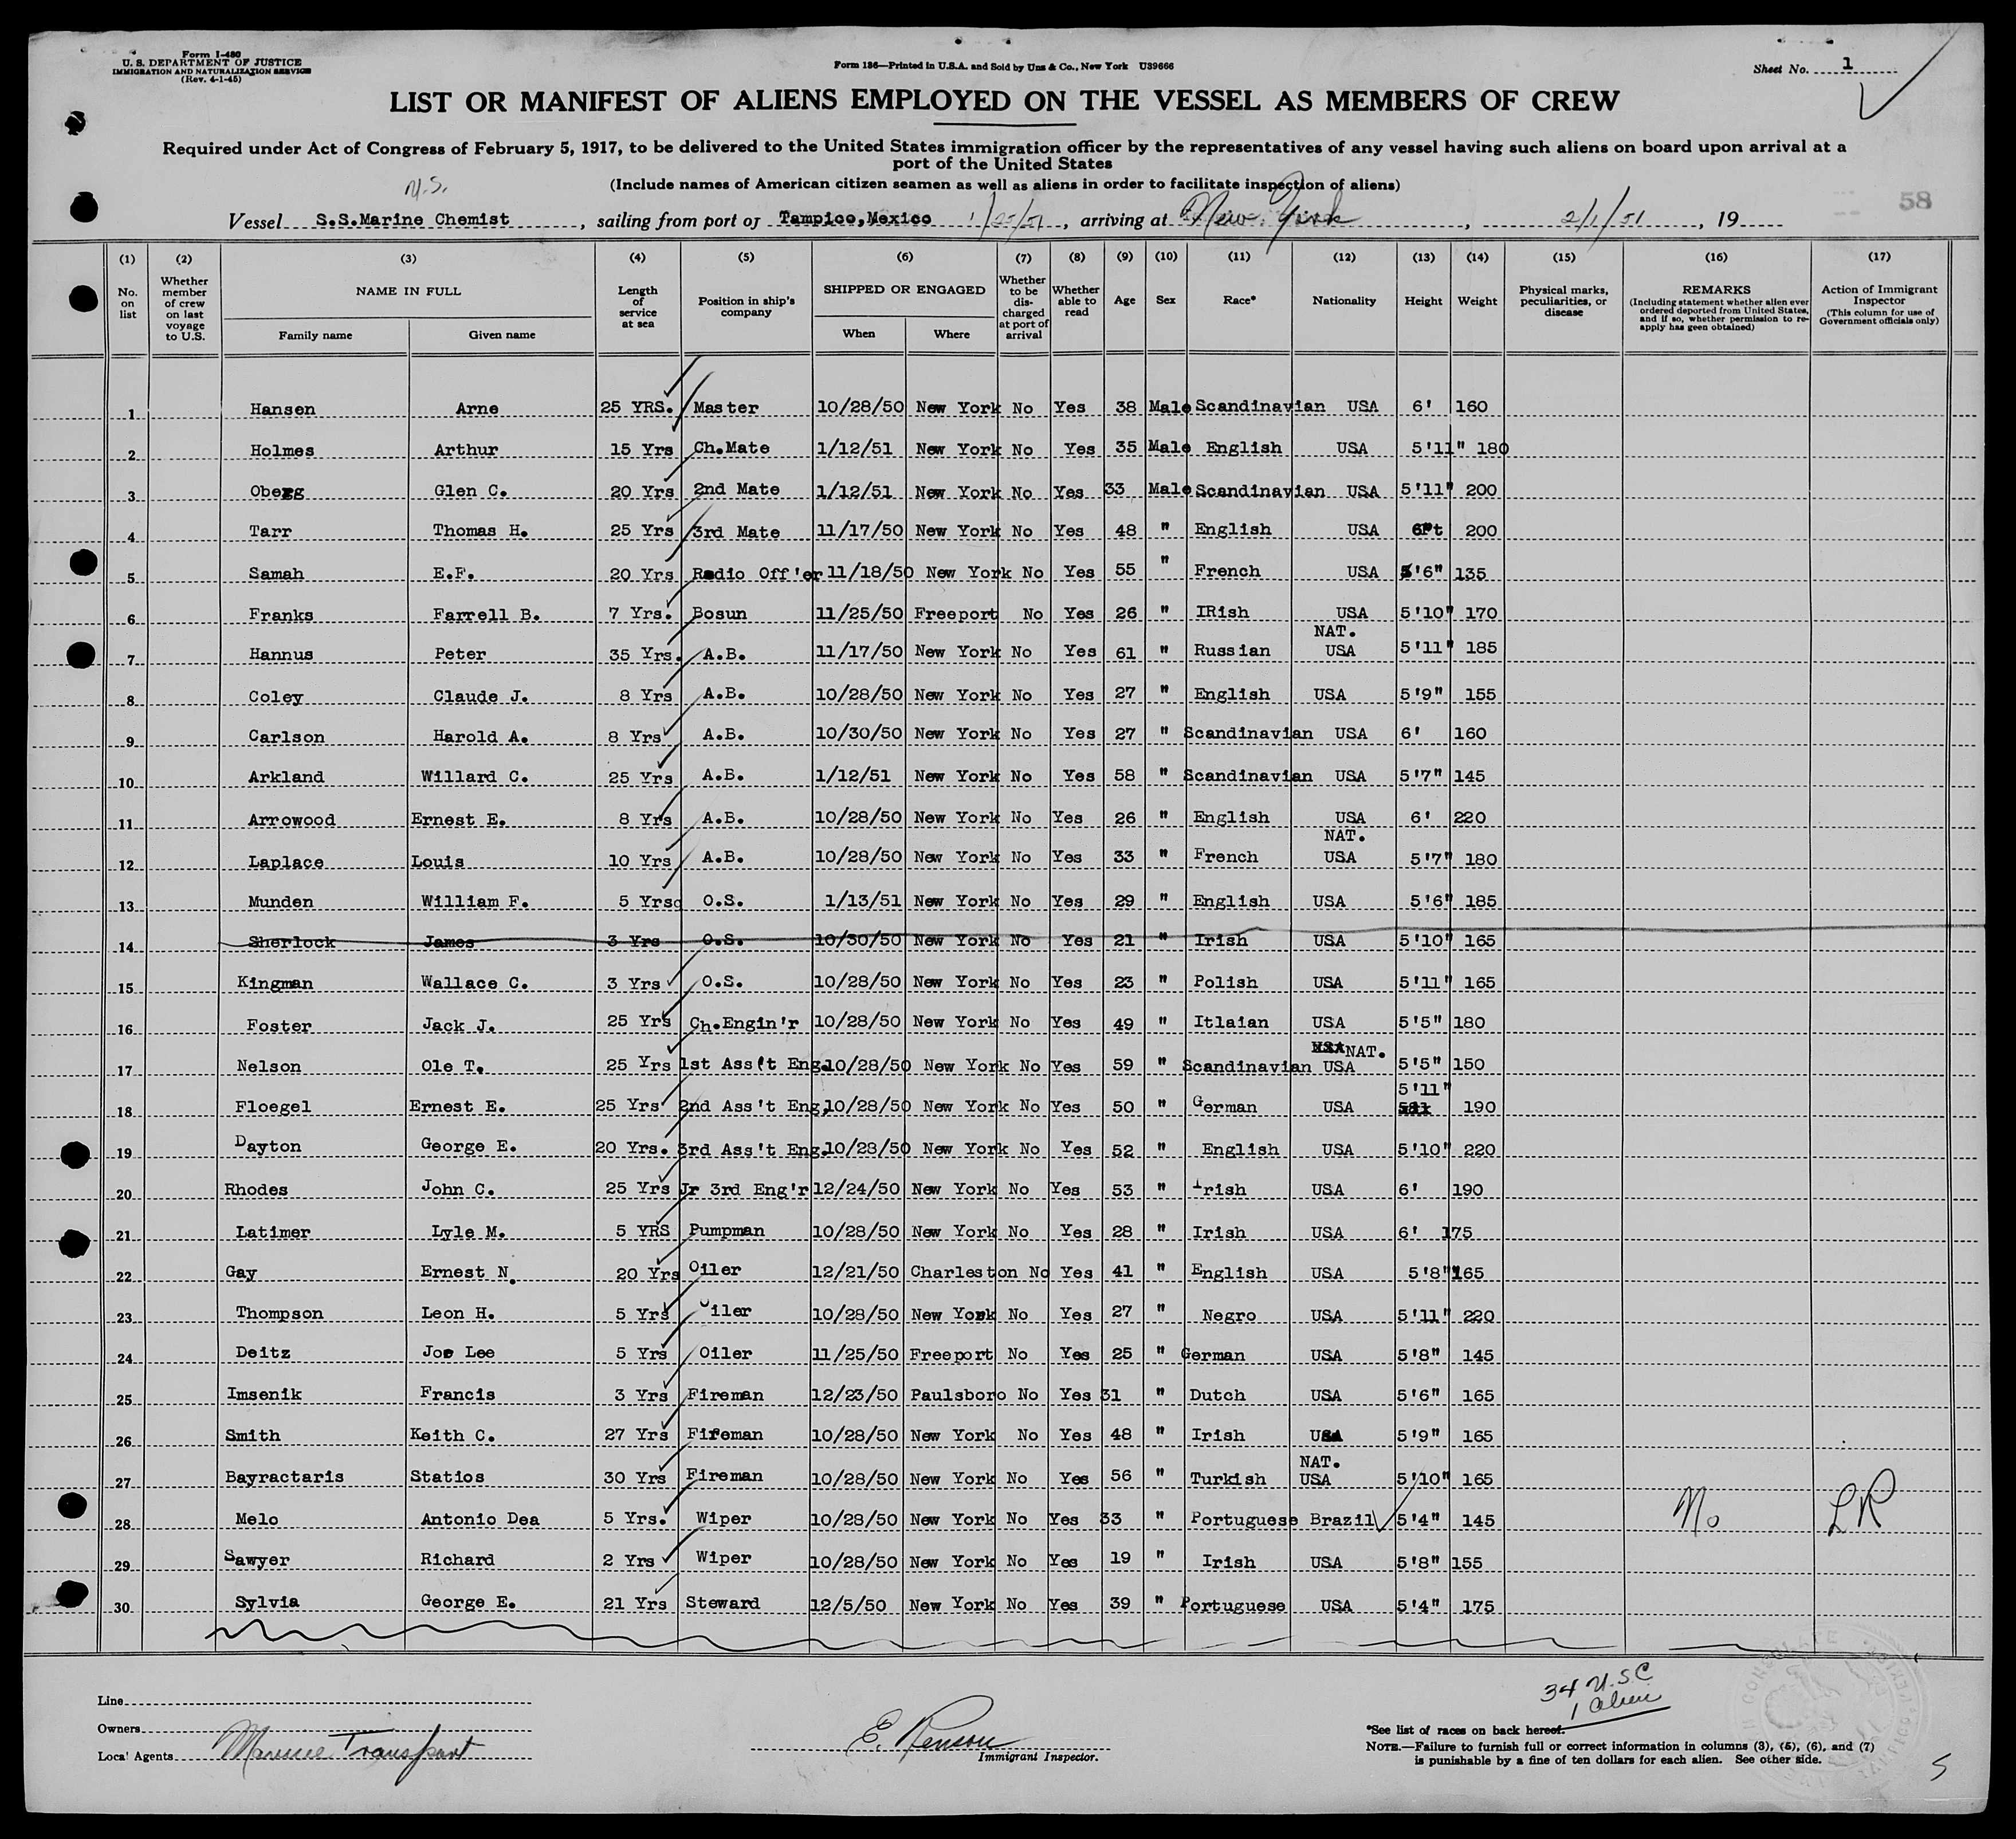 Form I-480
U. S. DEPARTMENT OF JUSTICE
IMMIGRATION AND NATURALIZATION SERVICE
(Rev. 4-1-45)
Form 136—Printed in U.S.A. and Sold by Unz & Co., New York U39666
Sheet No. 1
LIST OR MANIFEST OF ALIENS EMPLOYED ON THE VESSEL AS MEMBERS OF CREW
Required under Act of Congress of February 5, 1917, to be delivered to the United States immigration officer by the representatives of any vessel having such aliens on board upon arrival at a
port of the United States
(Include names of American citizen seamen as well as aliens in order to facilitate inspection of aliens)
U.S.
58
Vessel S.S.Marine Chemist, sailing from port of Tampico,Mexico 1/25/51, arriving at New York, 2/1/51, 19
(1) (2) (3) (4) (5) (6) (7) (8) (9) (10) (11) (12) (13) (14) (15) (16) (17)
No. on list
Whether member of crew on last voyage to U.S.
NAME IN FULL
Family name Given name
Length of service at sea
Position in ship's company
SHIPPED OR ENGAGED
When Where
Whether to be discharged at port of arrival
Whether able to read
Age Sex Race* Nationality Height Weight
Physical marks, peculiarities, or disease
REMARKS
(Including statement whether alien ever ordered deported from United States, and if so, whether permission to re-apply has geen obtained)
Action of Immigrant Inspector
(This column for use of Government officials only)
1 Hansen Arne 25 YRS. Master 10/28/50 New York No Yes 38 Male Scandinavian USA 6' 160
2 Holmes Arthur 15 Yrs Ch.Mate 1/12/51 New York No Yes 35 Male English USA 5'11" 180
3 Oberg Glen C. 20 Yrs 2nd Mate 1/12/51 New York No Yes 33 Male Scandinavian USA 5'11" 200
4 Tarr Thomas H. 25 Yrs 3rd Mate 11/17/50 New York No Yes 48 " English USA 6Ft 200
5 Samah E.F. 20 Yrs Radio Off'er 11/18/50 New York No Yes 55 " French USA 5'6" 135
6 Franks Farrell B. 7 Yrs. Bosun 11/25/50 Freeport No Yes 26 " IRish USA 5'10" 170
7 Hannus Peter 35 Yrs. A.B. 11/17/50 New York No Yes 61 " Russian NAT. USA 5'11" 185
8 Coley Claude J. 8 Yrs A.B. 10/28/50 New York No Yes 27 " English USA 5'9" 155
9 Carlson Harold A. 8 Yrs A.B. 10/30/50 New York No Yes 27 " Scandinavian USA 6' 160
10 Arkland Willard C. 25 Yrs A.B. 1/12/51 New York No Yes 58 " Scandinavian USA 5'7" 145
11 Arrowood Ernest E. 8 Yrs A.B. 10/28/50 New York No Yes 26 " English USA 6' 220
12 Laplace Louis 10 Yrs A.B. 10/28/50 New York No Yes 33 " French NAT. USA 5'7" 180
13 Munden William F. 5 Yrs O.S. 1/13/51 New York No Yes 29 " English USA 5'6" 185
14 Sherlock James 3 Yrs O.S. 10/30/50 New York No Yes 21 " Irish USA 5'10" 165
15 Kingman Wallace C. 3 Yrs O.S. 10/28/50 New York No Yes 23 " Polish USA 5'11" 165
16 Foster Jack J. 25 Yrs Ch.Engin'r 10/28/50 New York No Yes 49 " Itlaian USA 5'5" 180
17 Nelson Ole T. 25 Yrs 1st Ass't Eng. 10/28/50 New York No Yes 59 " Scandinavian NAT. USA 5'5" 150
18 Floegel Ernest E. 25 Yrs 2nd Ass't Eng. 10/28/50 New York No Yes 50 " German USA 5'11" 190
19 Dayton George E. 20 Yrs. 3rd Ass't Eng. 10/28/50 New York No Yes 52 " English USA 5'10" 220
20 Rhodes John C. 25 Yrs Jr 3rd Eng'r 12/24/50 New York No Yes 53 " Irish USA 6' 190
21 Latimer Lyle M. 5 YRS Pumpman 10/28/50 New York No Yes 28 " Irish USA 6' 175
22 Gay Ernest N. 20 Yrs Oiler 12/21/50 Charleston No Yes 41 " English USA 5'8" 165
23 Thompson Leon H. 5 Yrs Oiler 10/28/50 New York No Yes 27 " Negro USA 5'11" 220
24 Deitz Joe Lee 5 Yrs Oiler 11/25/50 Freeport No Yes 25 " German USA 5'8" 145
25 Imsenik Francis 3 Yrs Fireman 12/23/50 Paulsboro No Yes 31 " Dutch USA 5'6" 165
26 Smith Keith C. 27 Yrs Fireman 10/28/50 New York No Yes 48 " Irish USA 5'9" 165
27 Bayractaris Statios 30 Yrs Fireman 10/28/50 New York No Yes 56 " Turkish NAT. USA 5'10" 165
28 Melo Antonio Dea 5 Yrs. Wiper 10/28/50 New York No Yes 33 " Portuguese Brazil 5'4" 145 No LR
29 Sawyer Richard 2 Yrs Wiper 10/28/50 New York No Yes 19 " Irish USA 5'8" 155
30 Sylvia George E. 21 Yrs Steward 12/5/50 New York No Yes 39 " Portuguese USA 5'4" 175
34 U.S.C
1 alien
Line
Owners
Local Agents Marine Transport
E. Renson
Immigrant Inspector.
*See list of races on back hereof.
NOTE.—Failure to furnish full or correct information in columns (3), (5), (6), and (7)
is punishable by a fine of ten dollars for each alien. See other side.
5